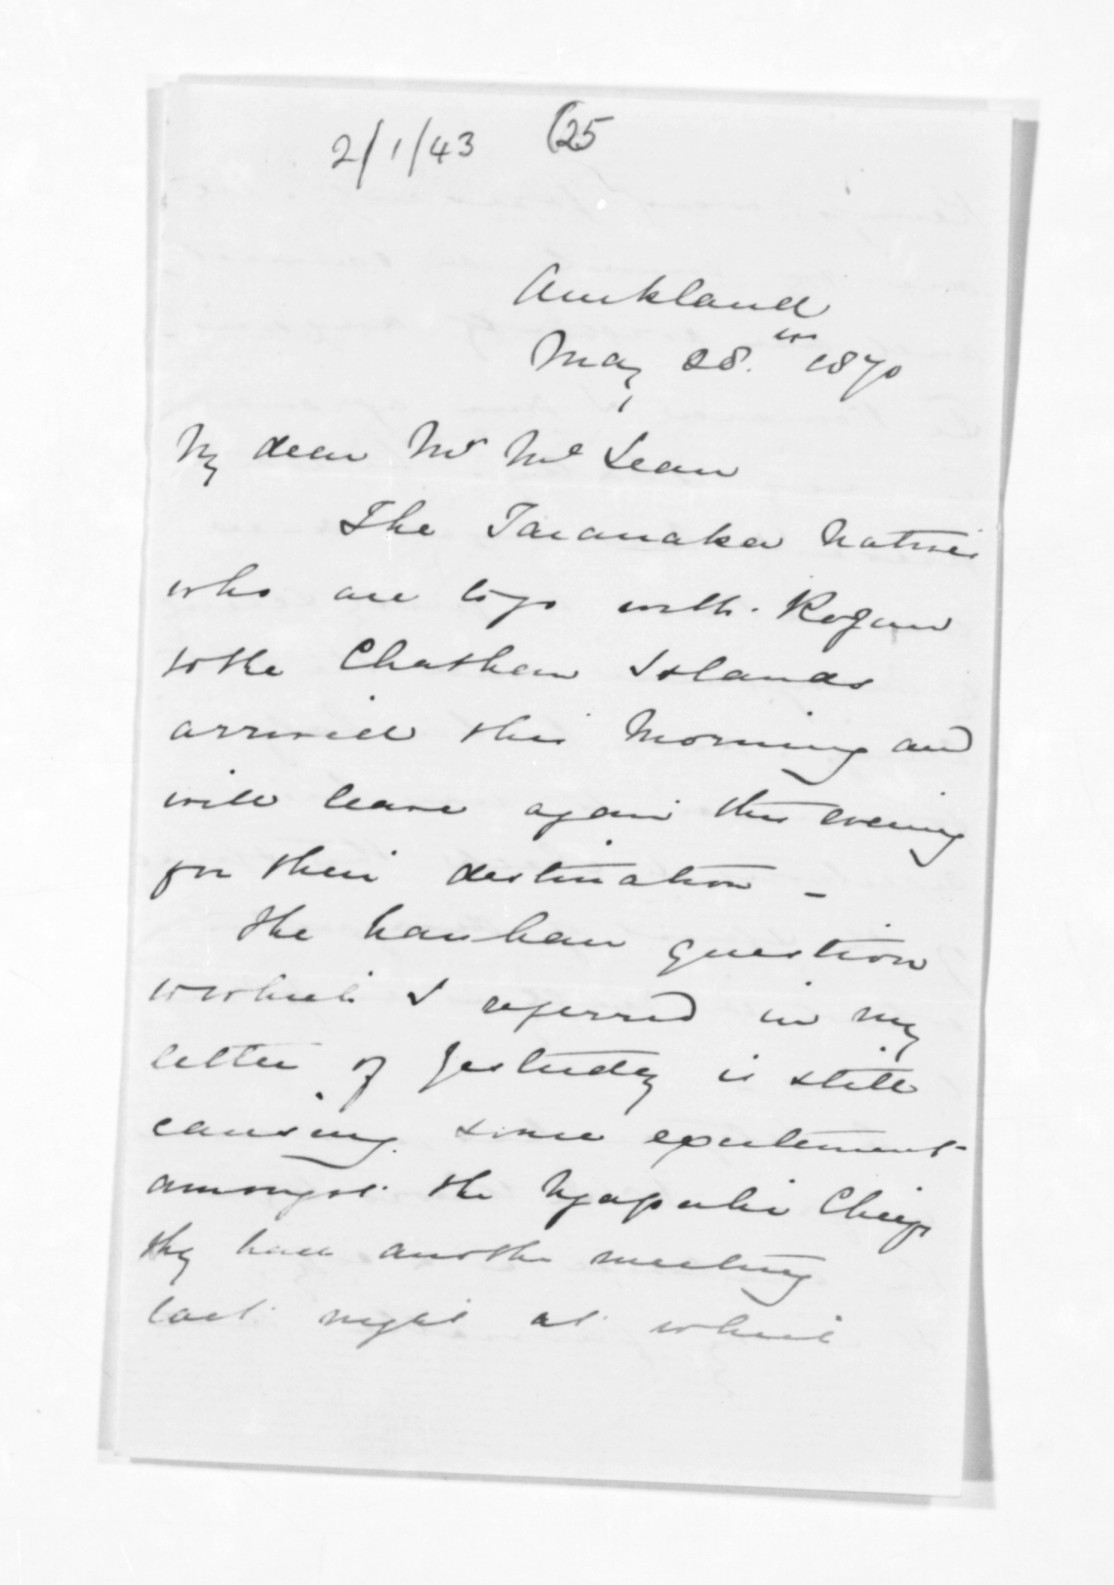 2/1/43 (25
Auckland
May 28th 1870
My dear Mr McLean
The Taranaki Natives
who are to go with Rogan
to the Chatham Islands
arrived this Morning and
will leave again this evening
for their destination -
The hauhau question
to which I referred in my
letter of yesterday is still
causing some excitement
amongst the Ngapuhi Chiefs
they had another meeting
last night at which